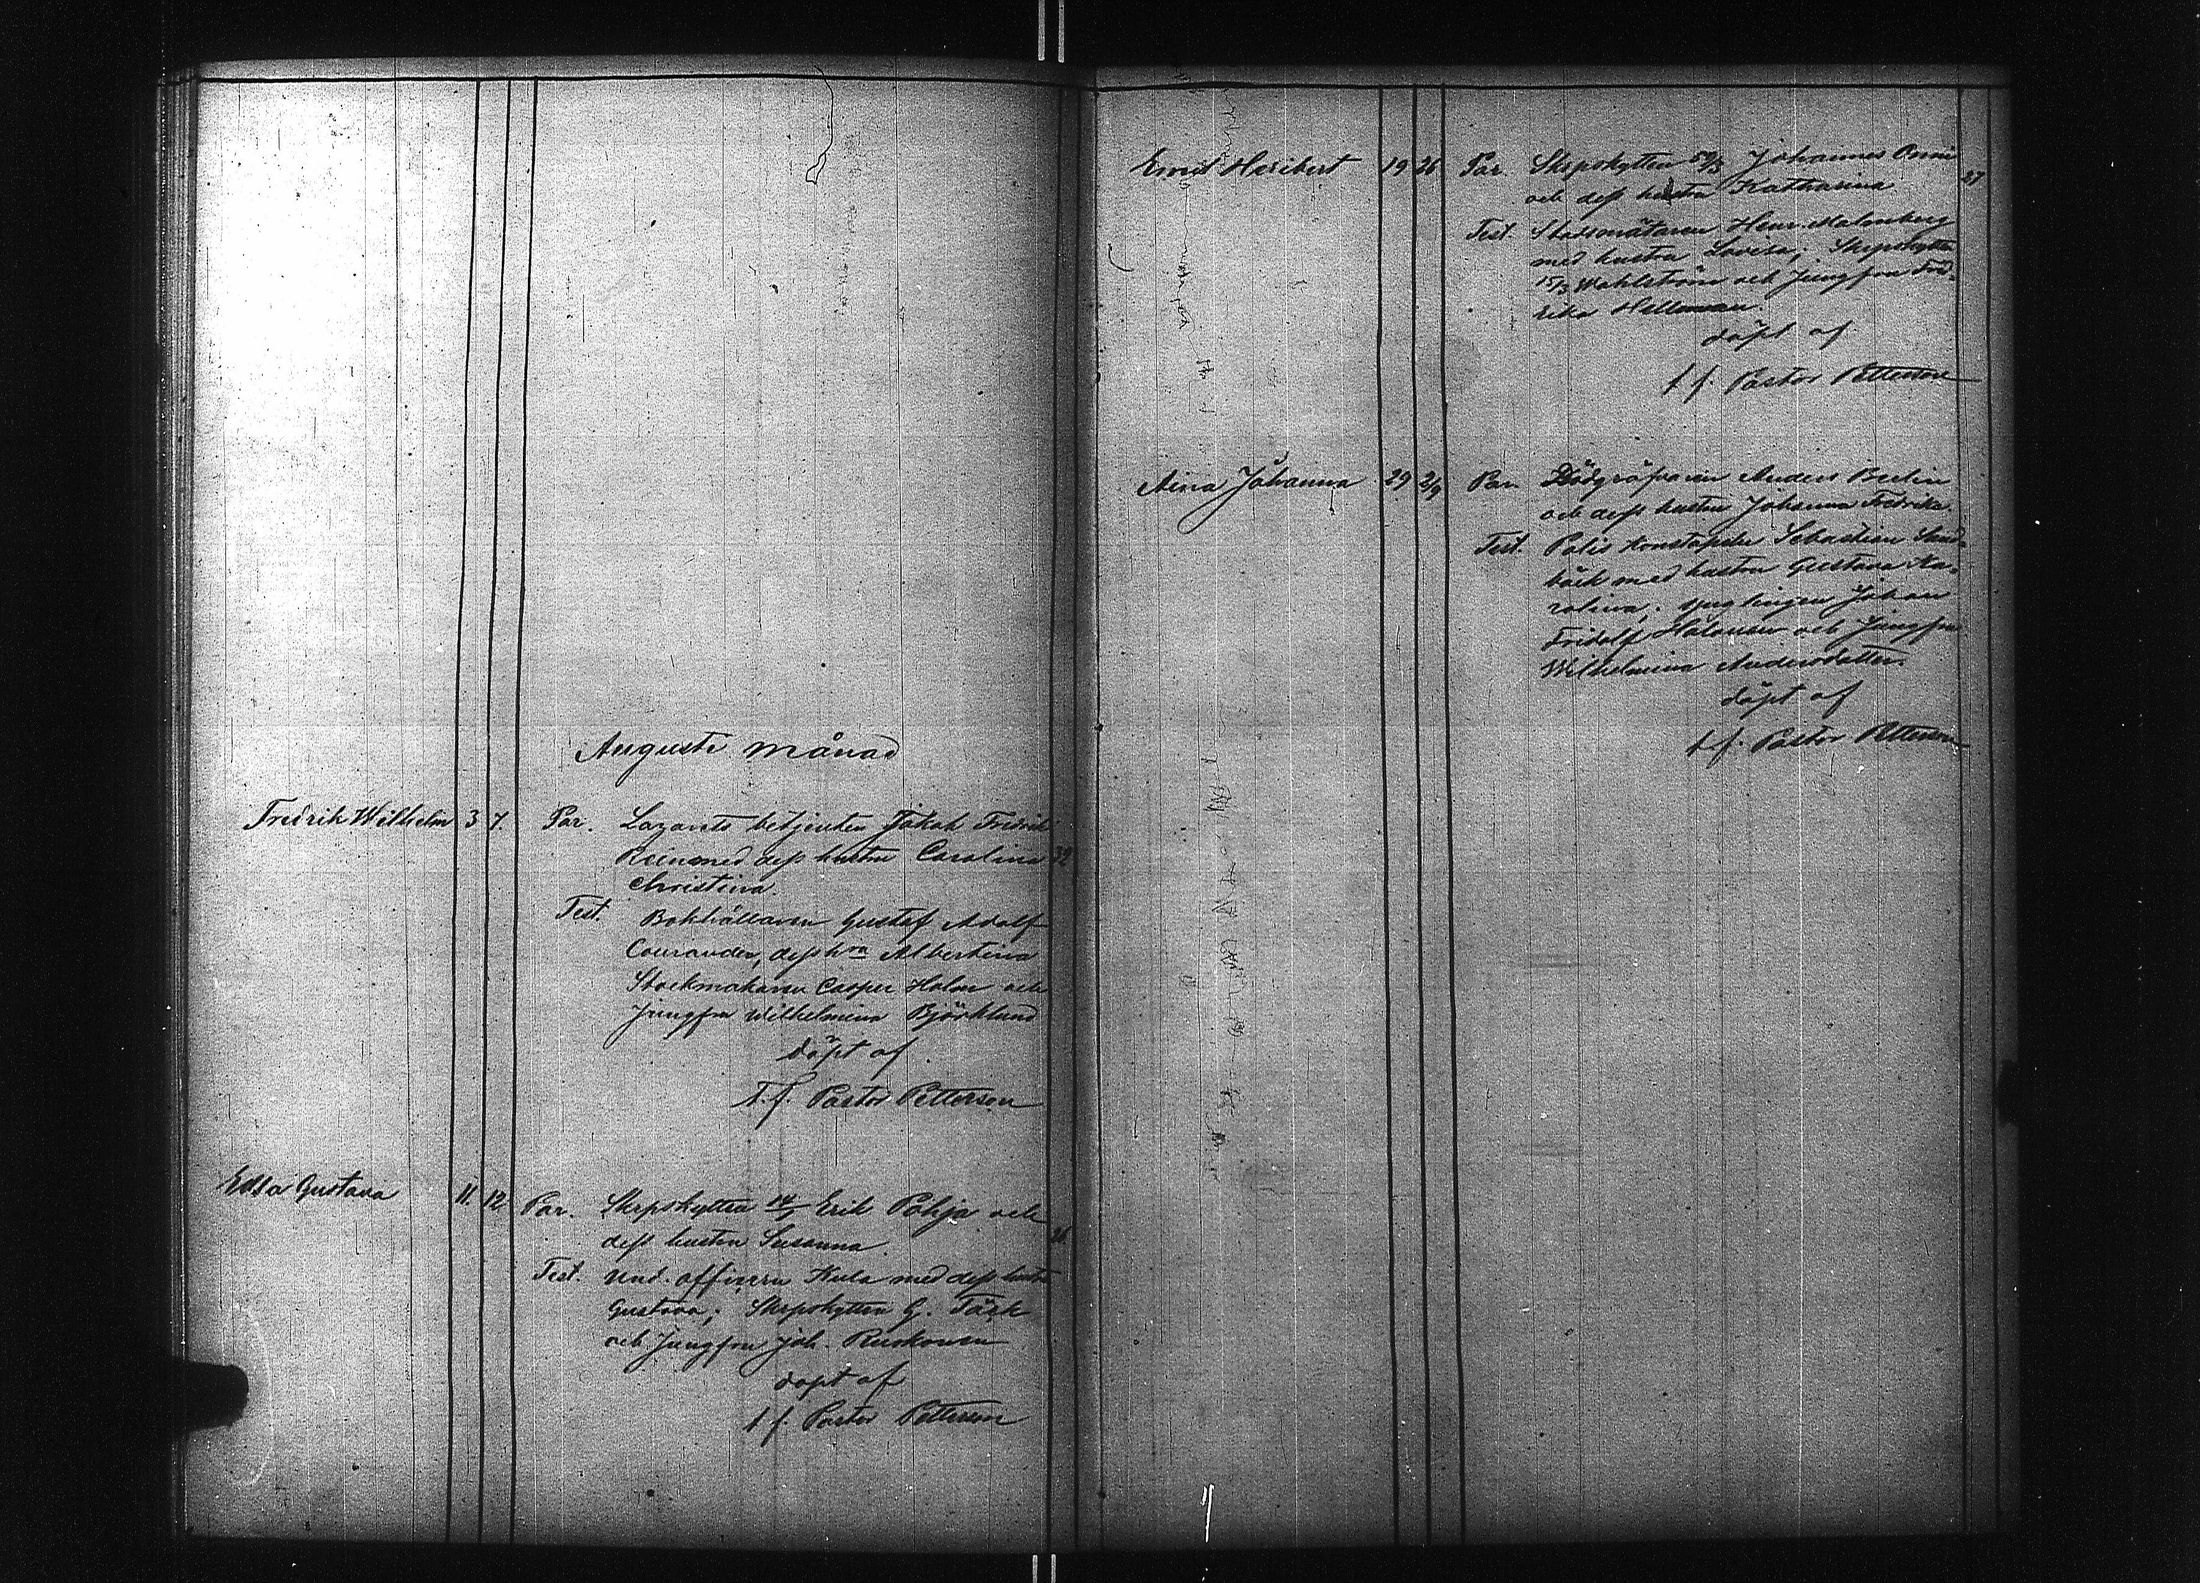 Auguste månad
Fredrik Wilhelm 3 7. Par. Lazarets betjenten Jakob Fredrik
Rein med dess hustru Carolina 32
Christina.
Test. Bokhållaren Gustaf Adolf
Courander, dess hru Albertina
Stockmakaren Casper Holm och
Jungfru Wilhelmina Björklund
döpt af
t. f. Pastor Petterson
Edla Gustava 11. 12 Par. Skrpskytten Erik Pohja och
dess hustru Susanna. 26
Test. Und. officern Kula med dess hustru
Gustava; Skrpskytten G. Täck
och Jungfru Joh. Ruskonen
döpt af
t f. Pastor Petterson
Emil Heribert 19 26 Par. Skrpskytten 50/3 Johannes
och dess hustru Katharina 27
Test. Henr. Malmberg
med hustru Lovisa; Skrpskytten
15/3 Wahlström och Jungfru Fred-
rika Helleman.
döpt af
t f. Pastor Petterson
Aina Johanna 29 2/9 Par. Dödgräfvaren Anders Berlin
och dess hustru Johanna Fredrika.
Test. Polis konstapeln Sebastian Sand-
bäck med hustru Gustava Ka-
rolina; ynglingen Johan
Fridolf och Jungfru
Wilhelmina Andersdotter.
döpt af
t f. Pastor Petterson